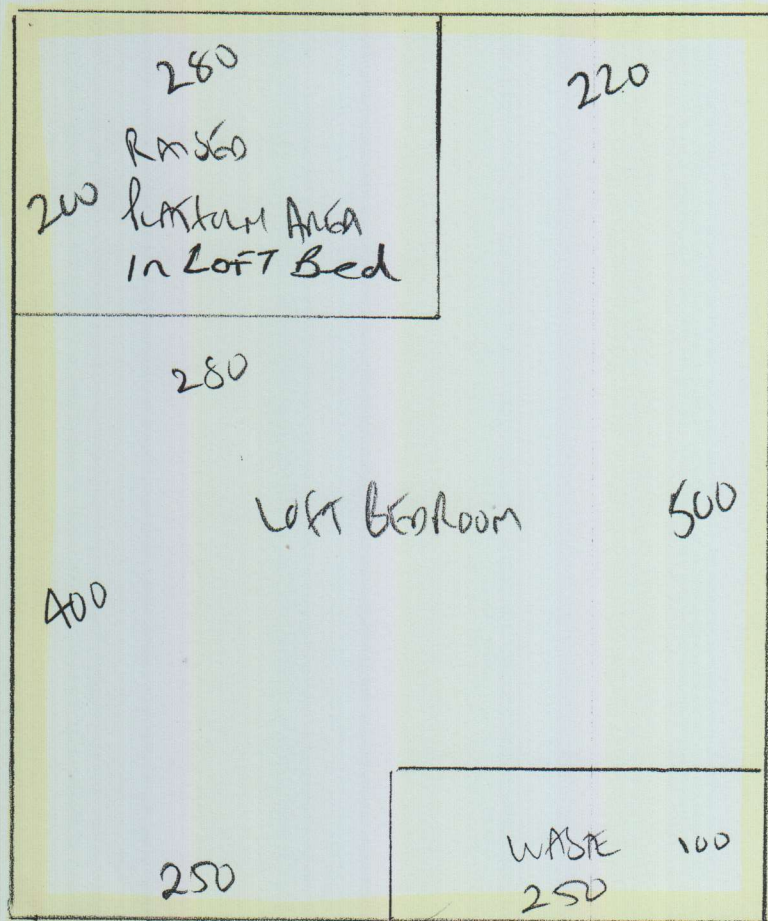 280
220
RAISED
200 PLATFORM AREA
in LOFT Bed
280
LOFT BEDROOM
500
400
WASTE 100
250
250